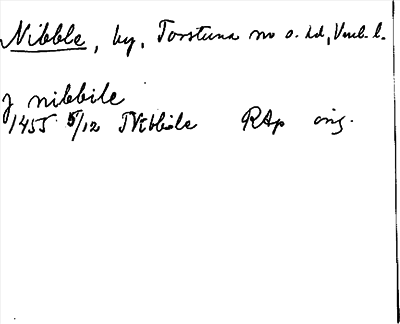 Nibble, by, Torstuna sn o. hd, Vml. l.
J nibbile
1455 5/12 Nibbile RAp orig.